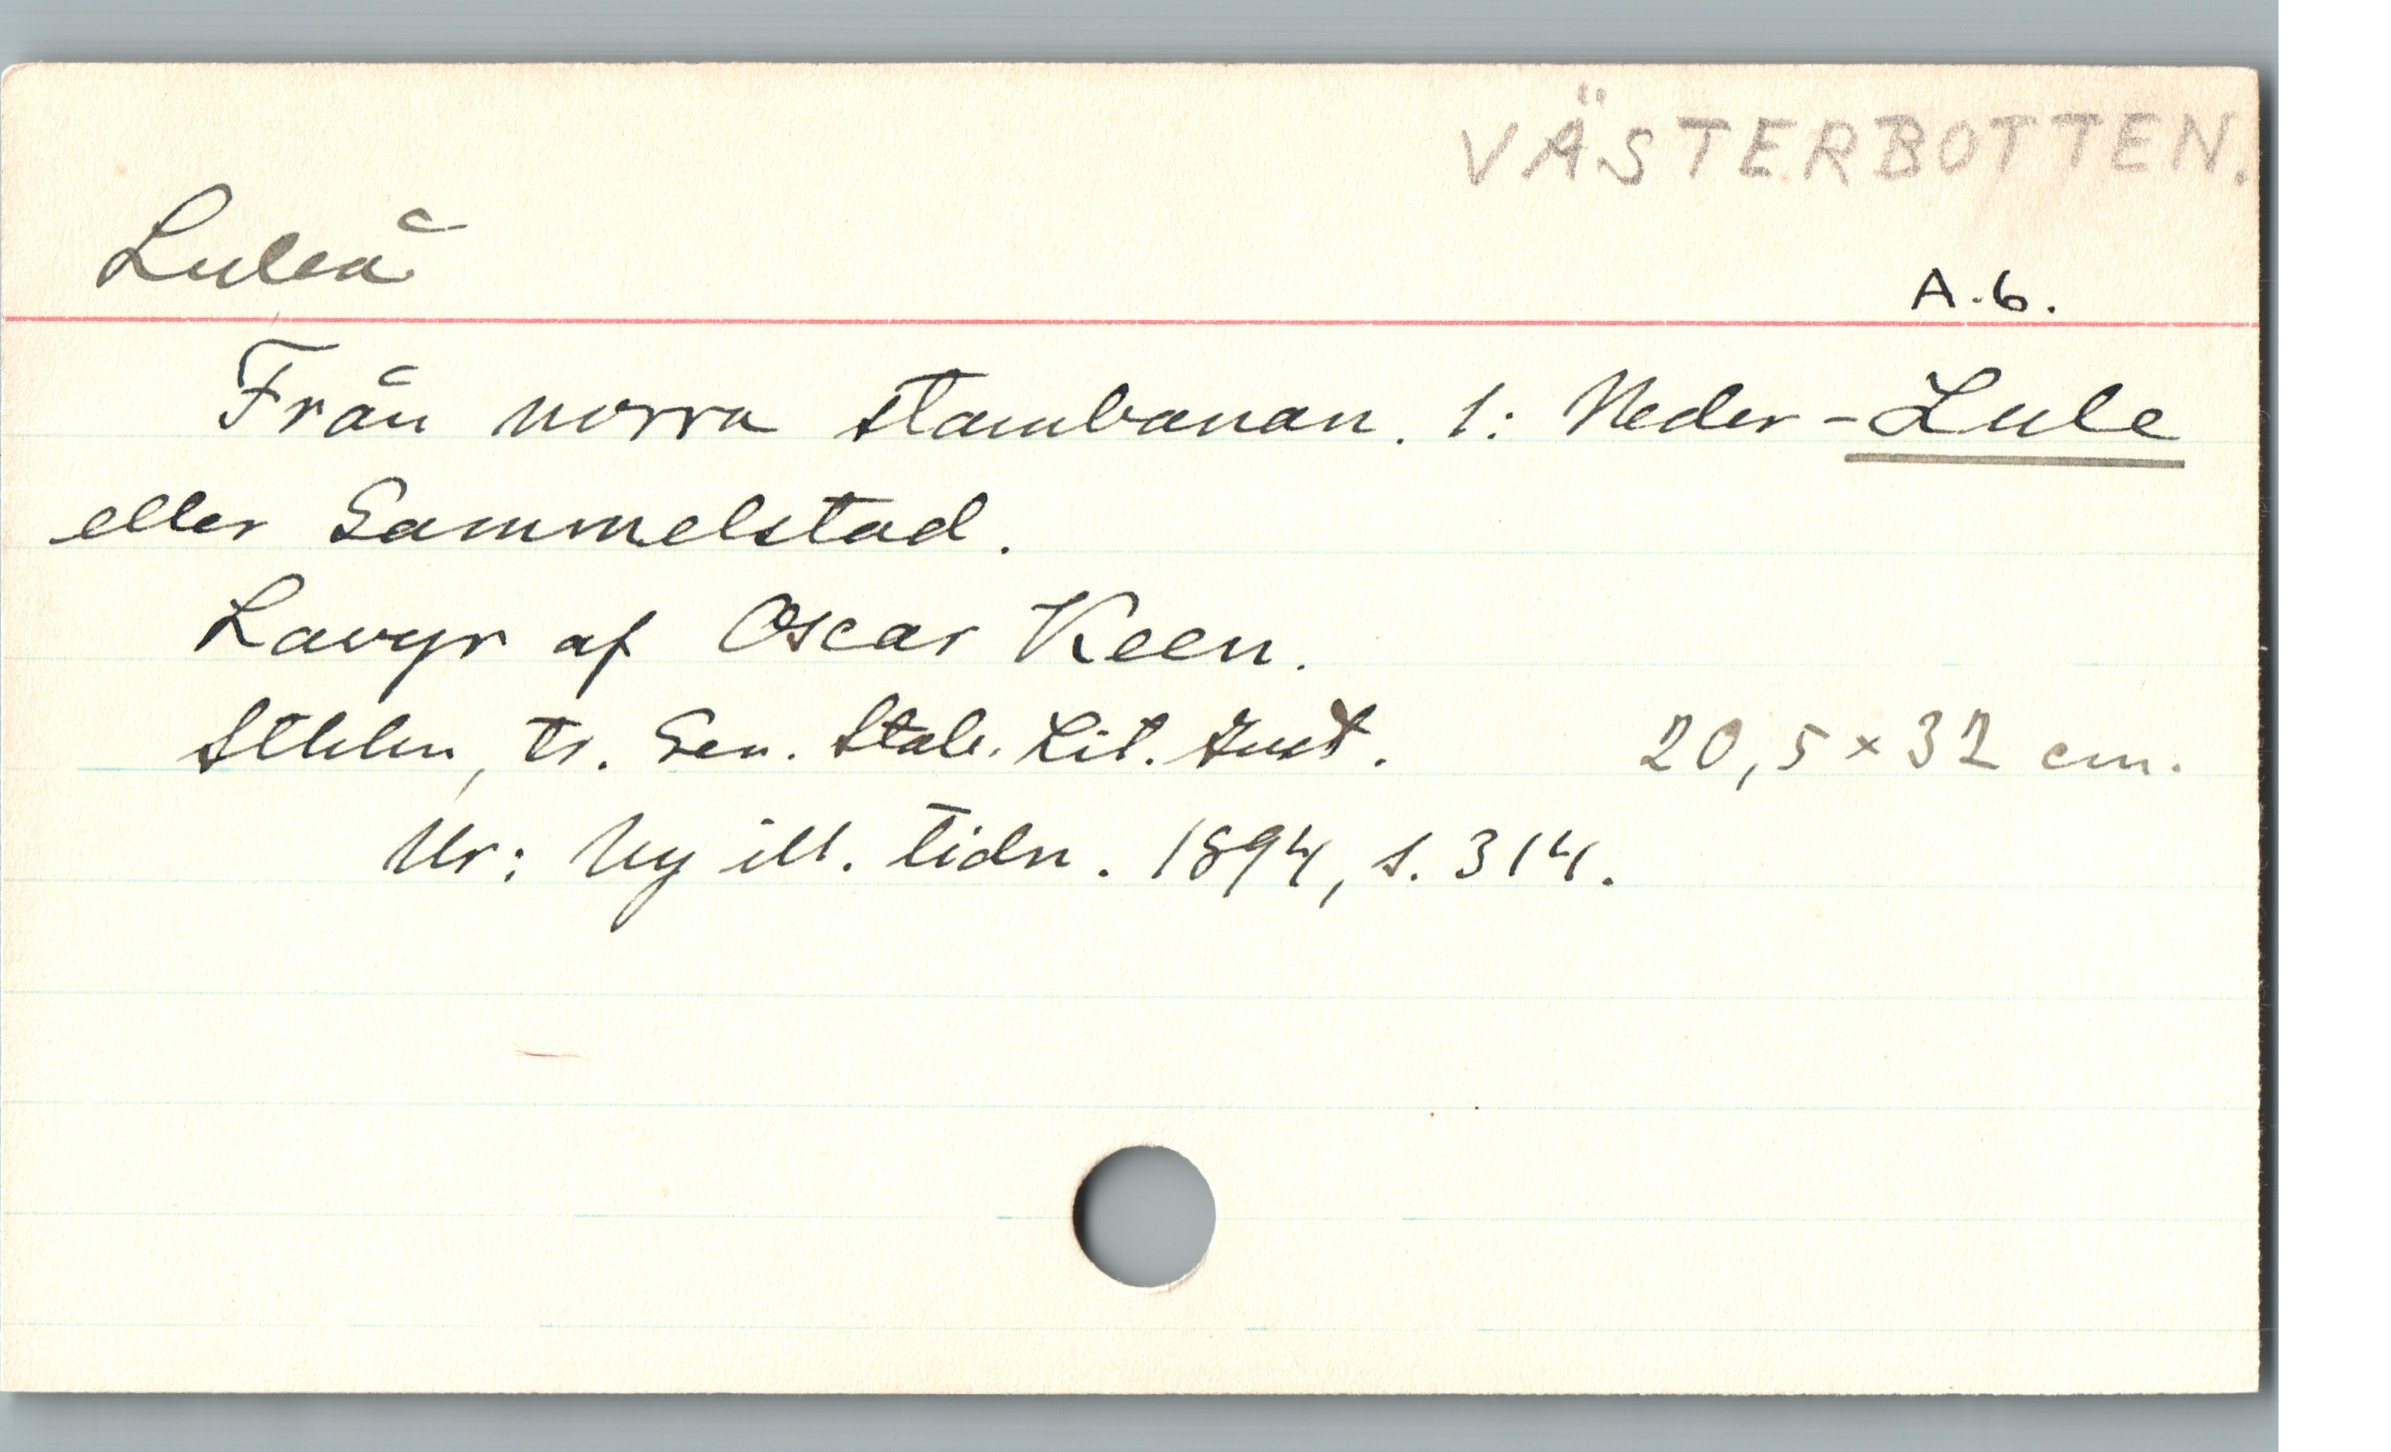 VÄSTERBOTTEN.
Luleå
A.6.
Från norra stambanan. 1: Neder-Lule
eller Gammelstad.
Lavyr af Oscar Keen.
Sthlm, tr. Gen. Stab. Lit. Inst. 20,5 × 32 cm.
Ur: Ny ill. tidn. 1894, s. 314.